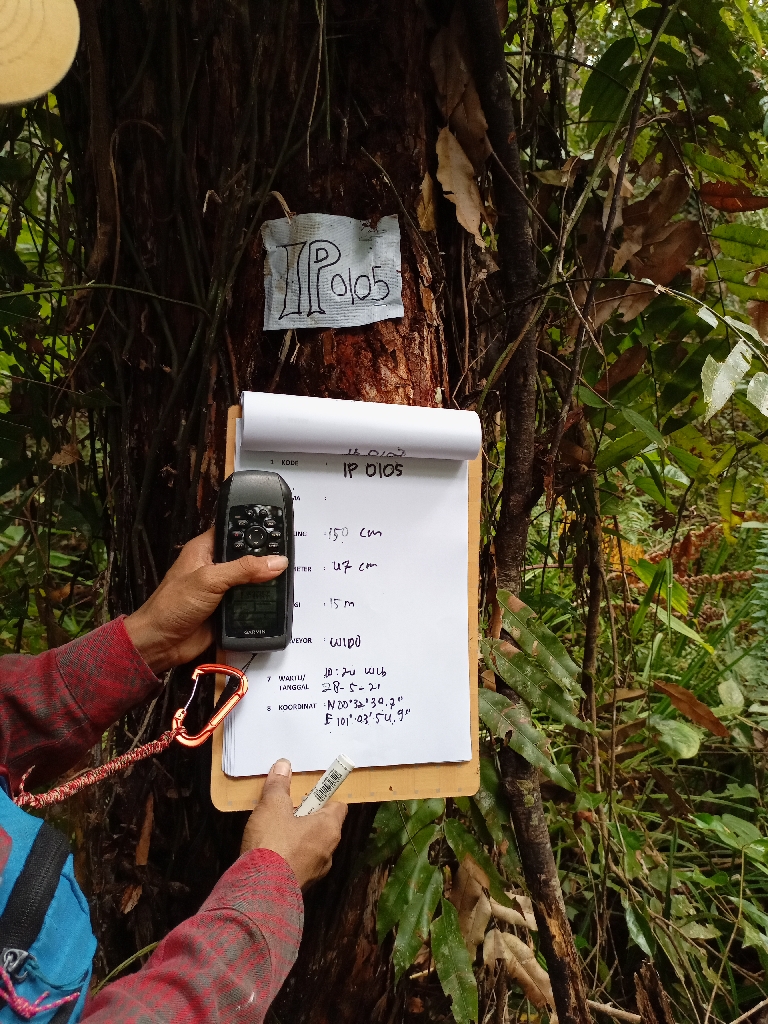 IP 0105
1 KODE : IP 0105
MA :
ING : 150 cm
METER : 47 cm
GI : 15 m
VEYOR : WIDO
7 WAKTU/ TANGGAL : 10:24 WIb
28-5-21
8 KOORDINAT : N 00°32'39.7"
E 101°03'54.9"
GARMIN